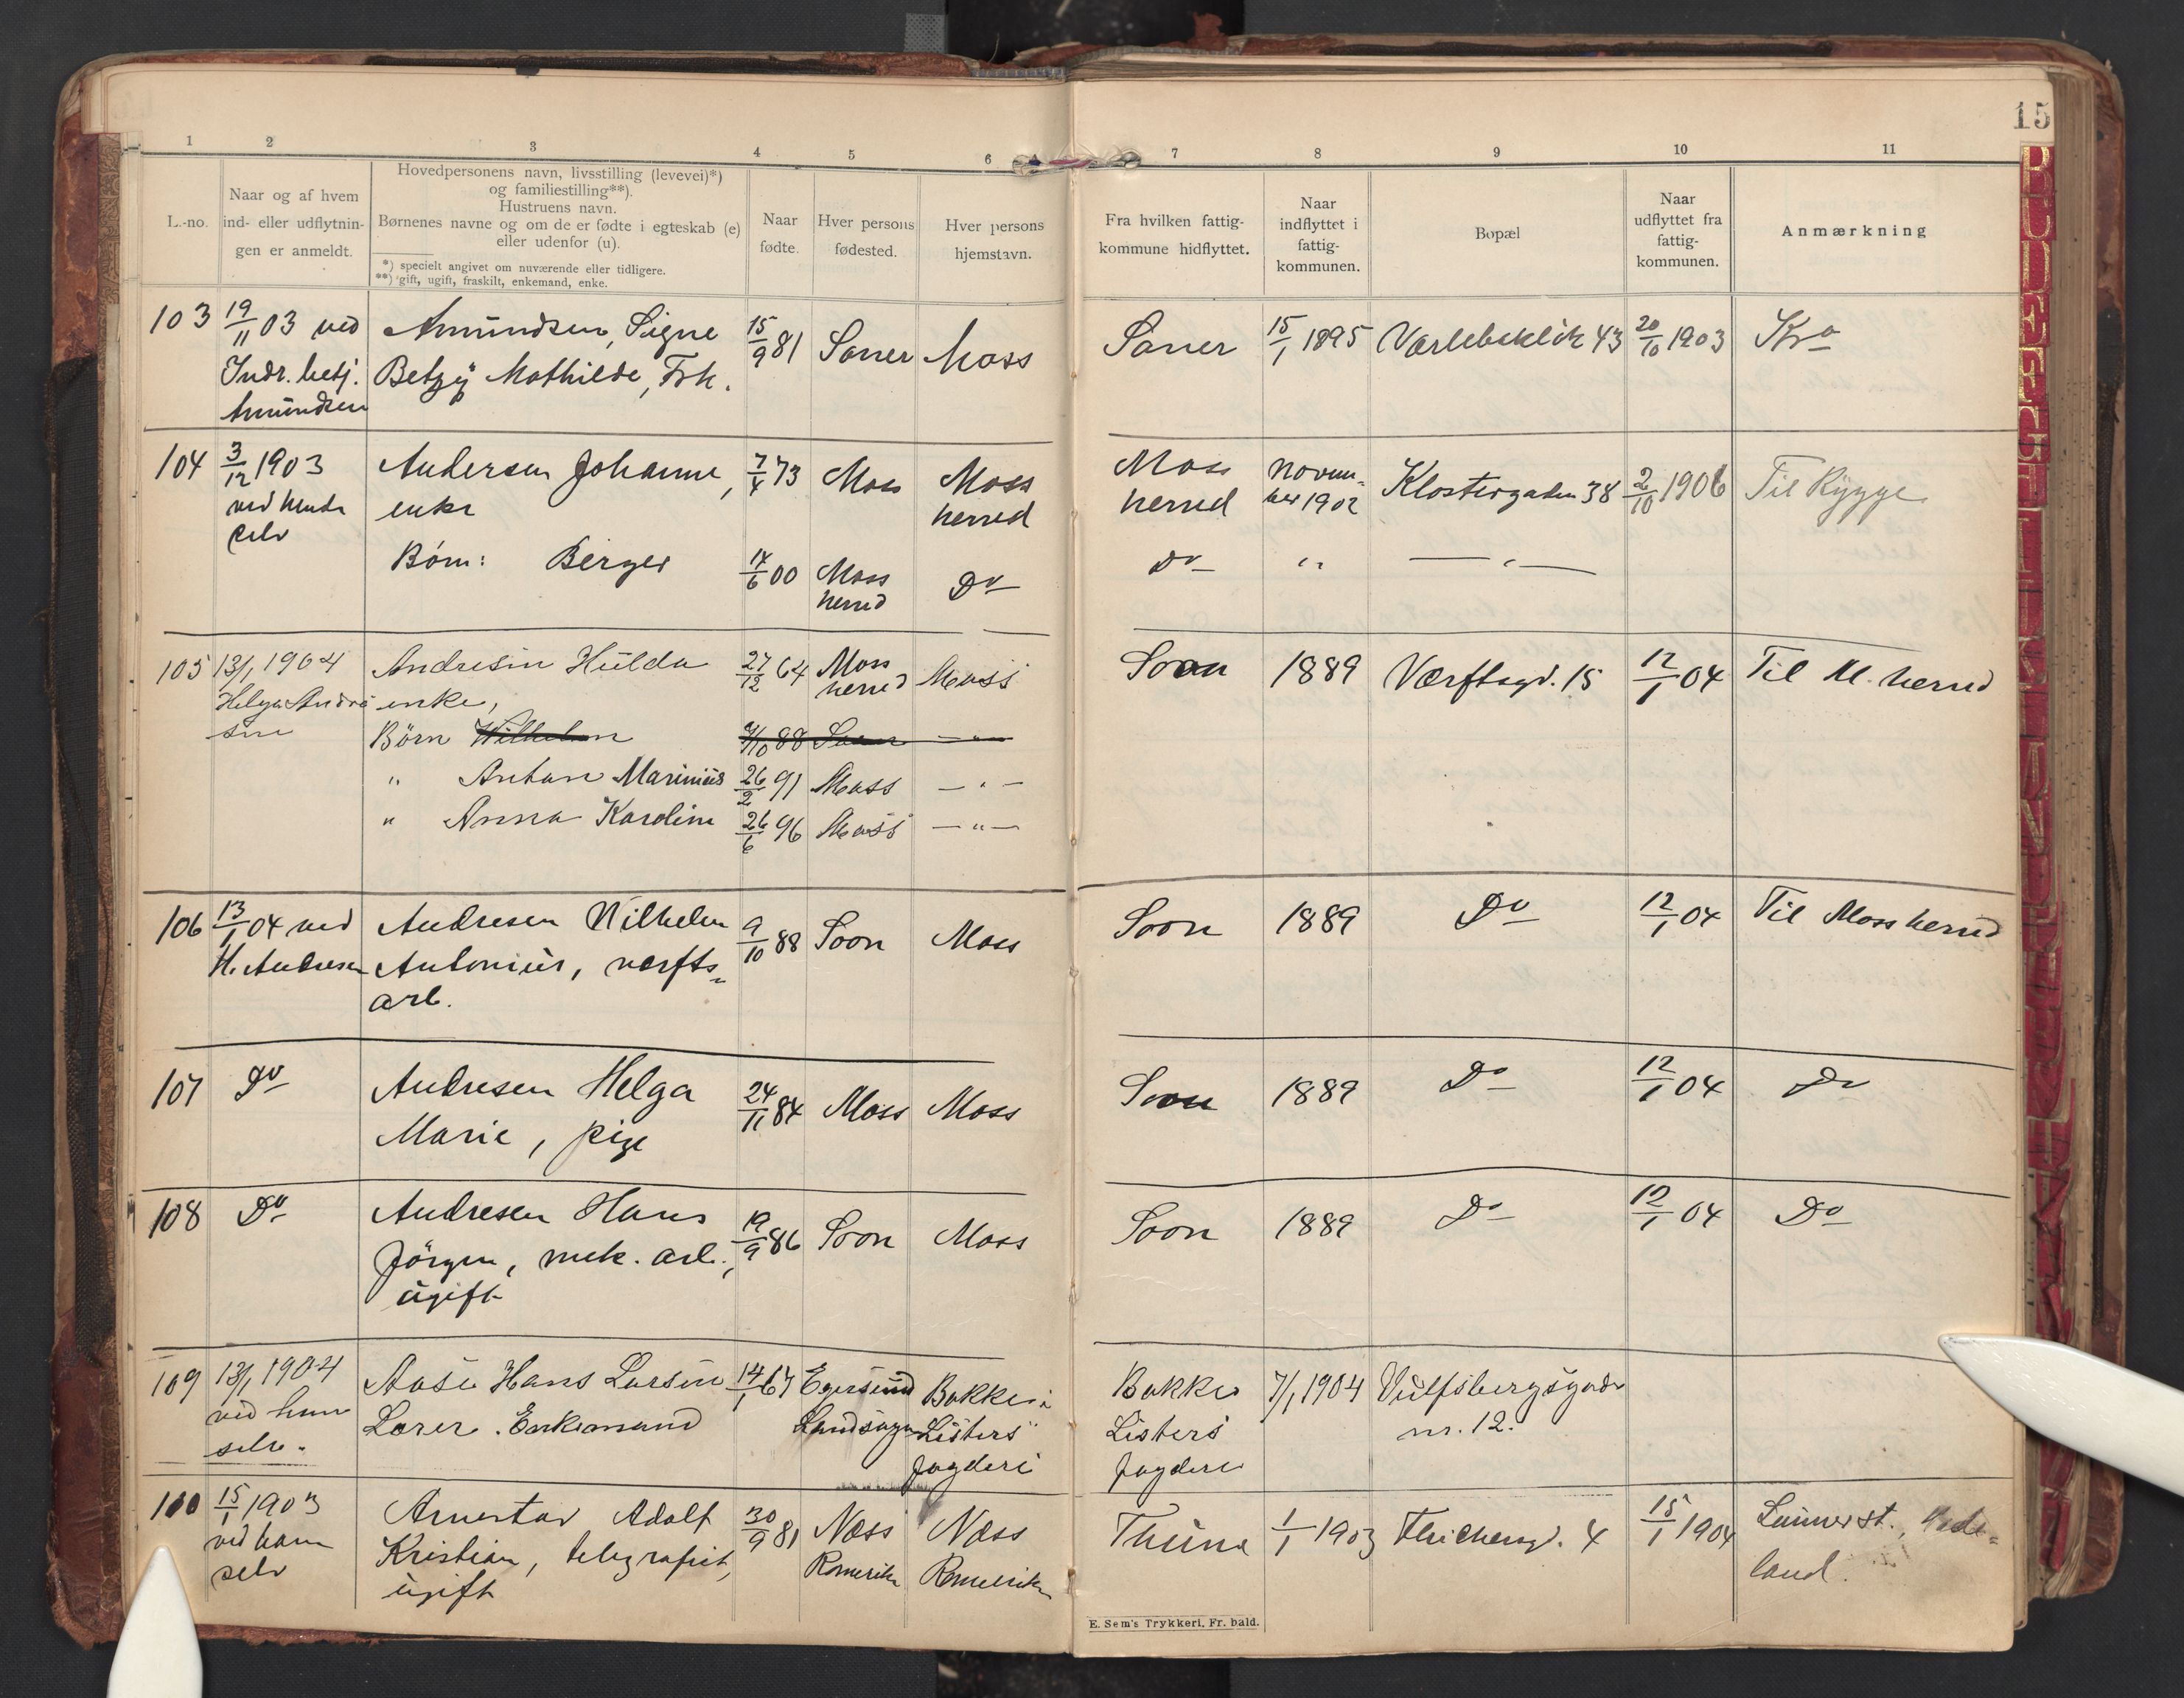 15
1 2 3 4 5 6 7 8 9 10 11
L.-no.
Naar og af hvem
ind- eller udflytnin-
gen er anmeldt.
Hovedpersonens navn, livsstilling (levevei)*)
og familiestilling**).
Hustruens navn.
Børnenes navne og om de er fødte i egteskab (e)
eller udenfor (u).
*) specielt angivet om nuværende eller tidligere.
**) gift, ugift, fraskilt, enkemand, enke.
Naar
fødte.
Hver persons
fødested.
Hver persons
hjemstavn.
Fra hvilken fattig-
kommune hidflyttet.
Naar
indflyttet i
fattig-
kommunen.
Bopæl
Naar
udflyttet fra
fattig-
kommunen.
Anmærkning
103 19/11 03 ved Amundsen, Signe 15/9 81 Saner Moss Saner 15/1 1895 43 20/10 1903 Kra
Indr. betj. Betzy Mathilde, Frk.
Amundsen
104 3/12 1903 Andersen Johanne, 7/4 73 Moss Moss herred Moss herred novem-ber 1902 Klostergaden 38 2/10 1906 Til Rygge
ved hende enke
selv
Børn: Berger 14/6 00 Moss herred Do Do " — " —
105 13/1 1904 Andresen Hulda 27/12 64 Moss herred Moss Soon 1889 Værftsgd. 15 12/1 04 Til M. herred
Helga Andre enke,
sen Børn Wilhelm 9/10 88 Soon — " —
" Anton Marinius 26/2 91 Moss — " —
" Anna Karoline 26/6 96 Moss — " —
106 13/1 04 ved Andresen Wilhelm 9/10 88 Soon Moss Soon 1889 Do 12/1 04 Til Moss herred
H. Andresen Antonius, værfts-
arb.
107 Do Andresen Helga 24/11 84 Moss Moss Soon 1889 Do 12/1 04 Do
Marie, pige
108 Do Andresen Hans 19/9 86 Soon Moss Soon 1889 Do 12/1 04 Do
Jörgen, mek. arb.,
ugift
109 13/1 1904 Aase Hans Larsen 14/1 67 Egersund Bakke i Bakke 7/1 1904 Vulfsbergsgade
ved ham Lærer. Enkemand Landsogn Listers Listers nr. 12.
selv. fogderi fogderi
110 15/1 1903 Arnestar Adolf 30/9 81 Næss Næss 1/1 1903 4 15/1 1904 Lunner st., Hade-
ved ham Kristian, telegrafist, Romerike Romerike land.
selv ugift
E. Sem's Trykkeri, Fr. hald.